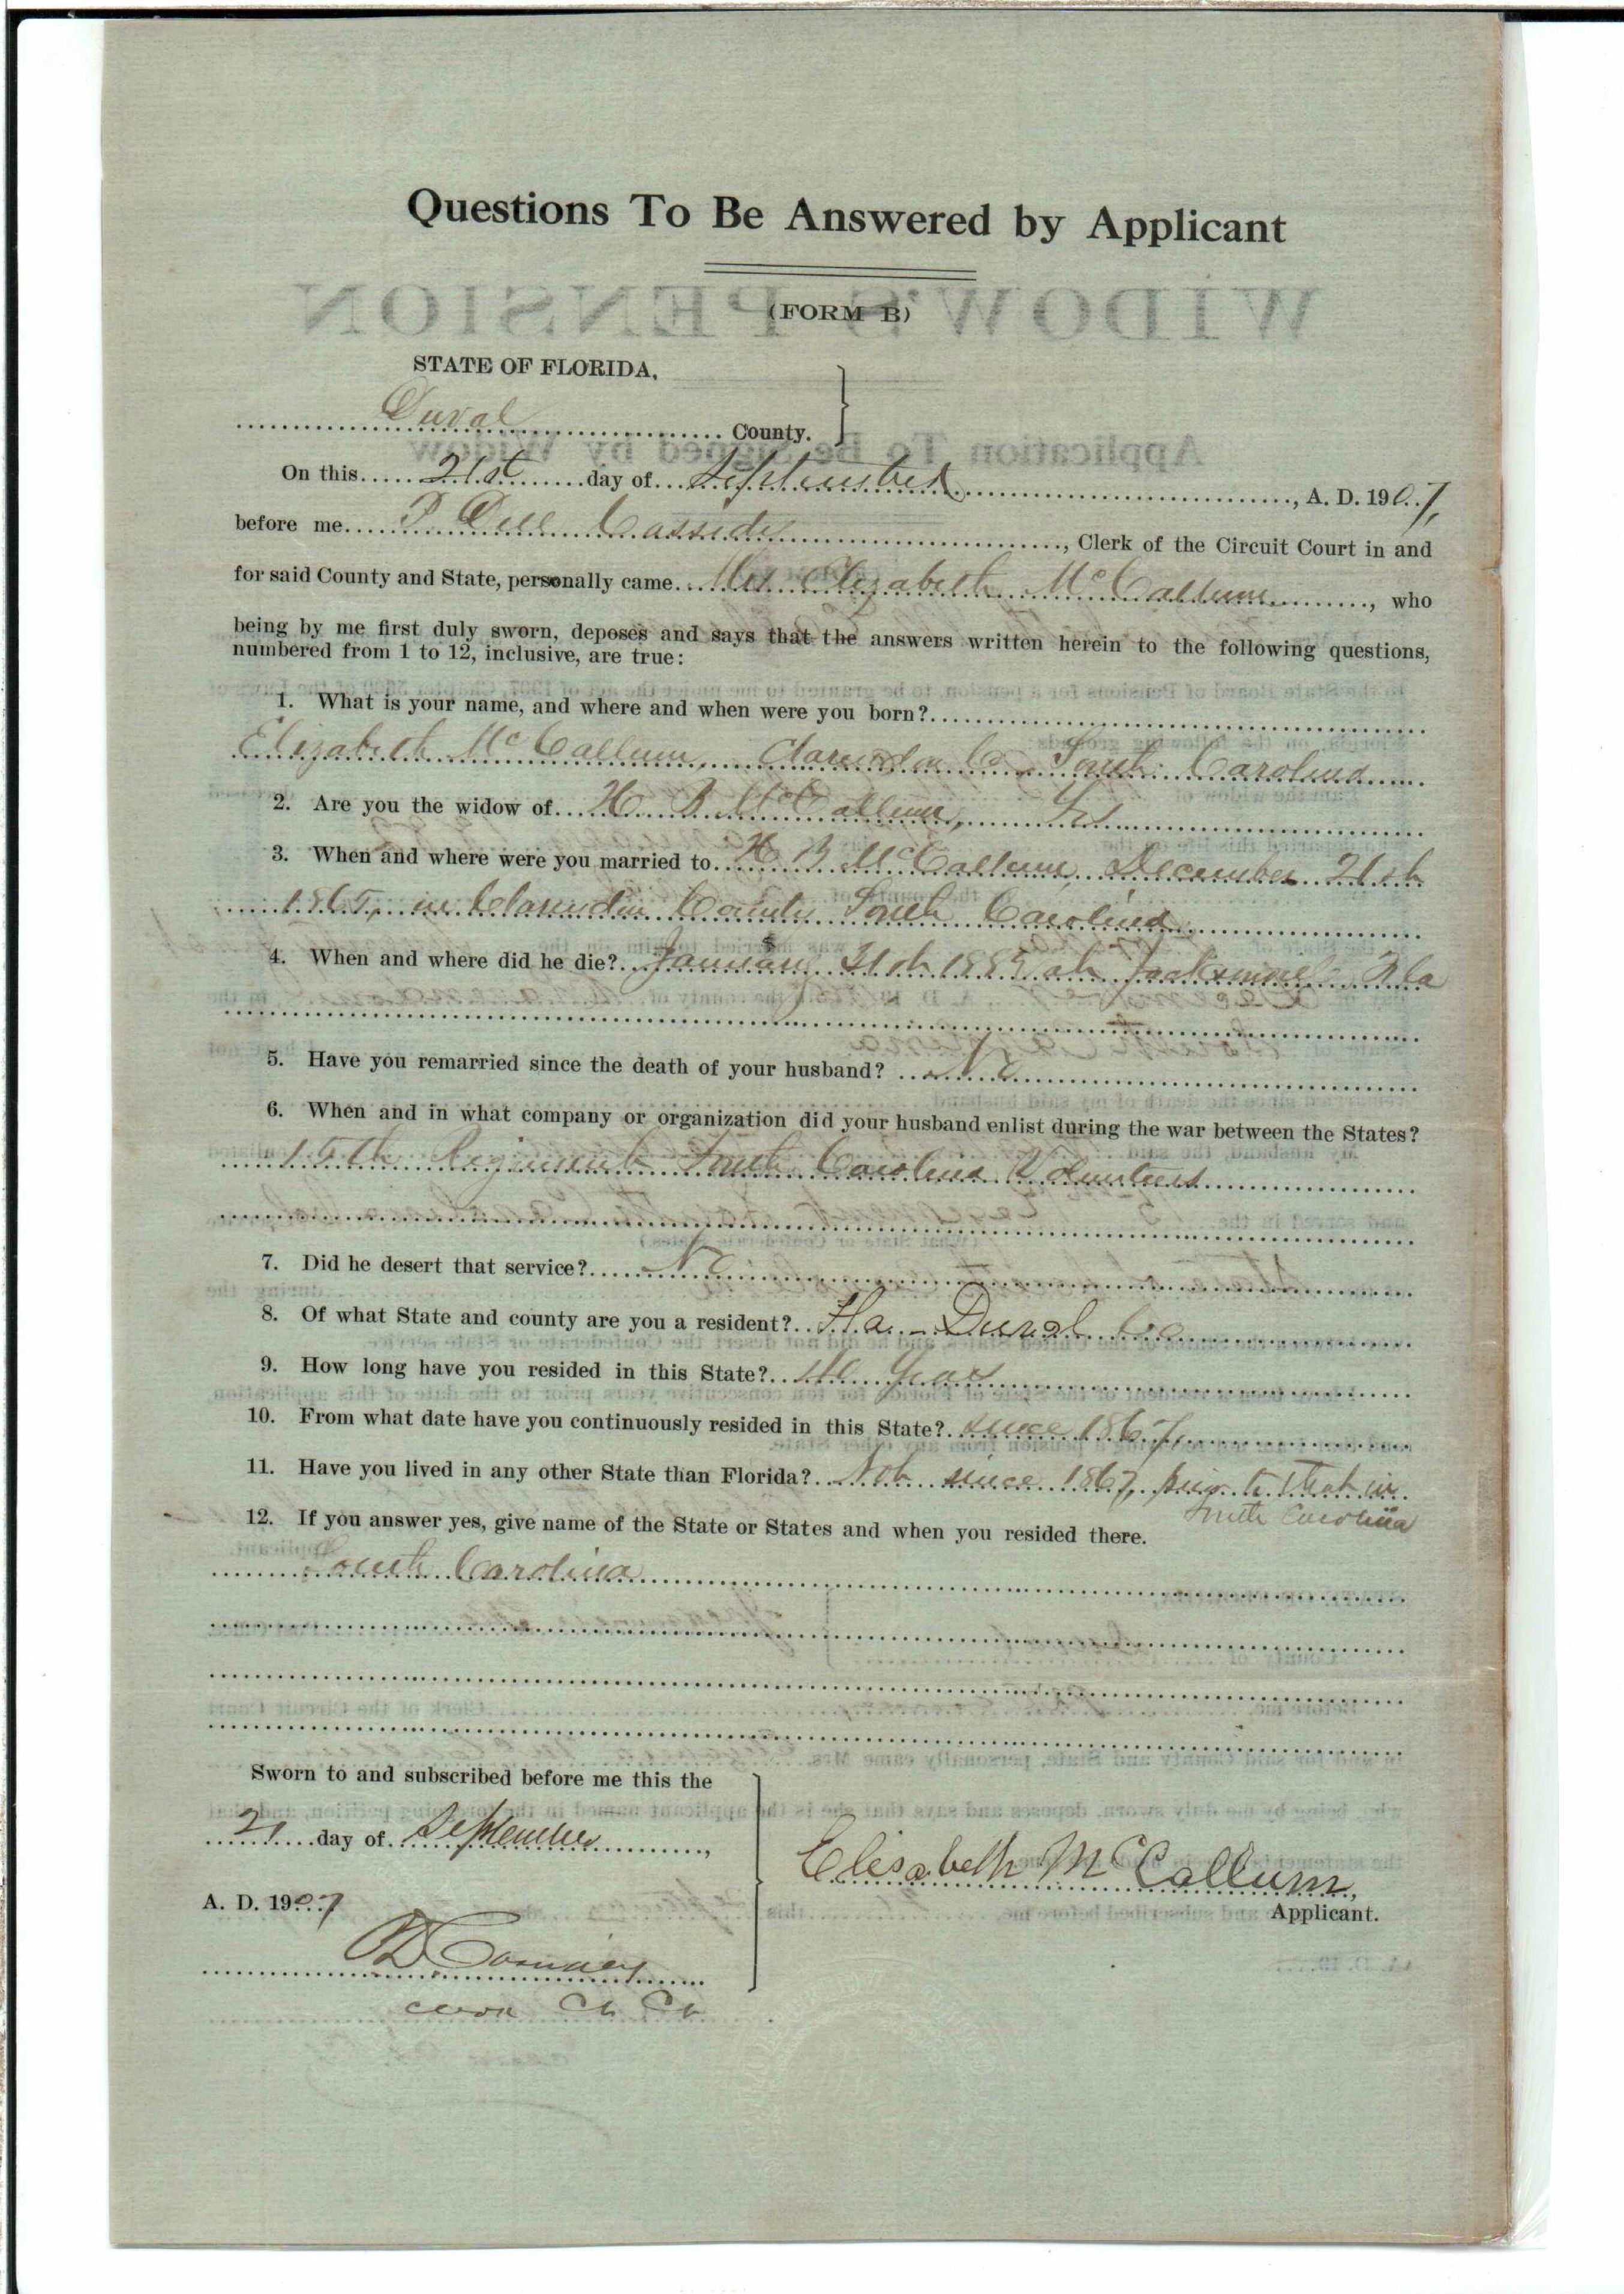 Questions To Be Answered by Applicant
(FORM B)
STATE OF FLORIDA,
Duval County.
On this 21st day of September, A. D. 1907,
before me P Dell Cassidey, Clerk of the Circuit Court in and
for said County and State, personally came Mrs Elizabeth McCallum, who
being by me first duly sworn, deposes and says that the answers written herein to the following questions,
numbered from 1 to 12, inclusive, are true:
1. What is your name, and where and when were you born?
Elizabeth McCallum, Clarendon Co South Carolina
2. Are you the widow of H B McCallum, Yes
3. When and where were you married to H B McCallum, December 21st
1865, in Clarendon County South Carolina
4. When and where did he die? January 21st at Jacksonville Fla
5. Have you remarried since the death of your husband? No
6. When and in what company or organization did your husband enlist during the war between the States?
15th Regiment South Carolina Volunteers
7. Did he desert that service? No
8. Of what State and county are you a resident? Fla. - Duval Co
9. How long have you resided in this State? 40 Years
10. From what date have you continuously resided in this State? since 1867,
11. Have you lived in any other State than Florida? Not since 1867, prior to that in
South Carolina
12. If you answer yes, give name of the State or States and when you resided there.
South Carolina
Sworn to and subscribed before me this the
21 day of September,
A. D. 1907
Elisabeth McCallum,
Applicant.
Clerk Ct Ct
WIDOW'S PENSION
Application To Be Signed by Widow